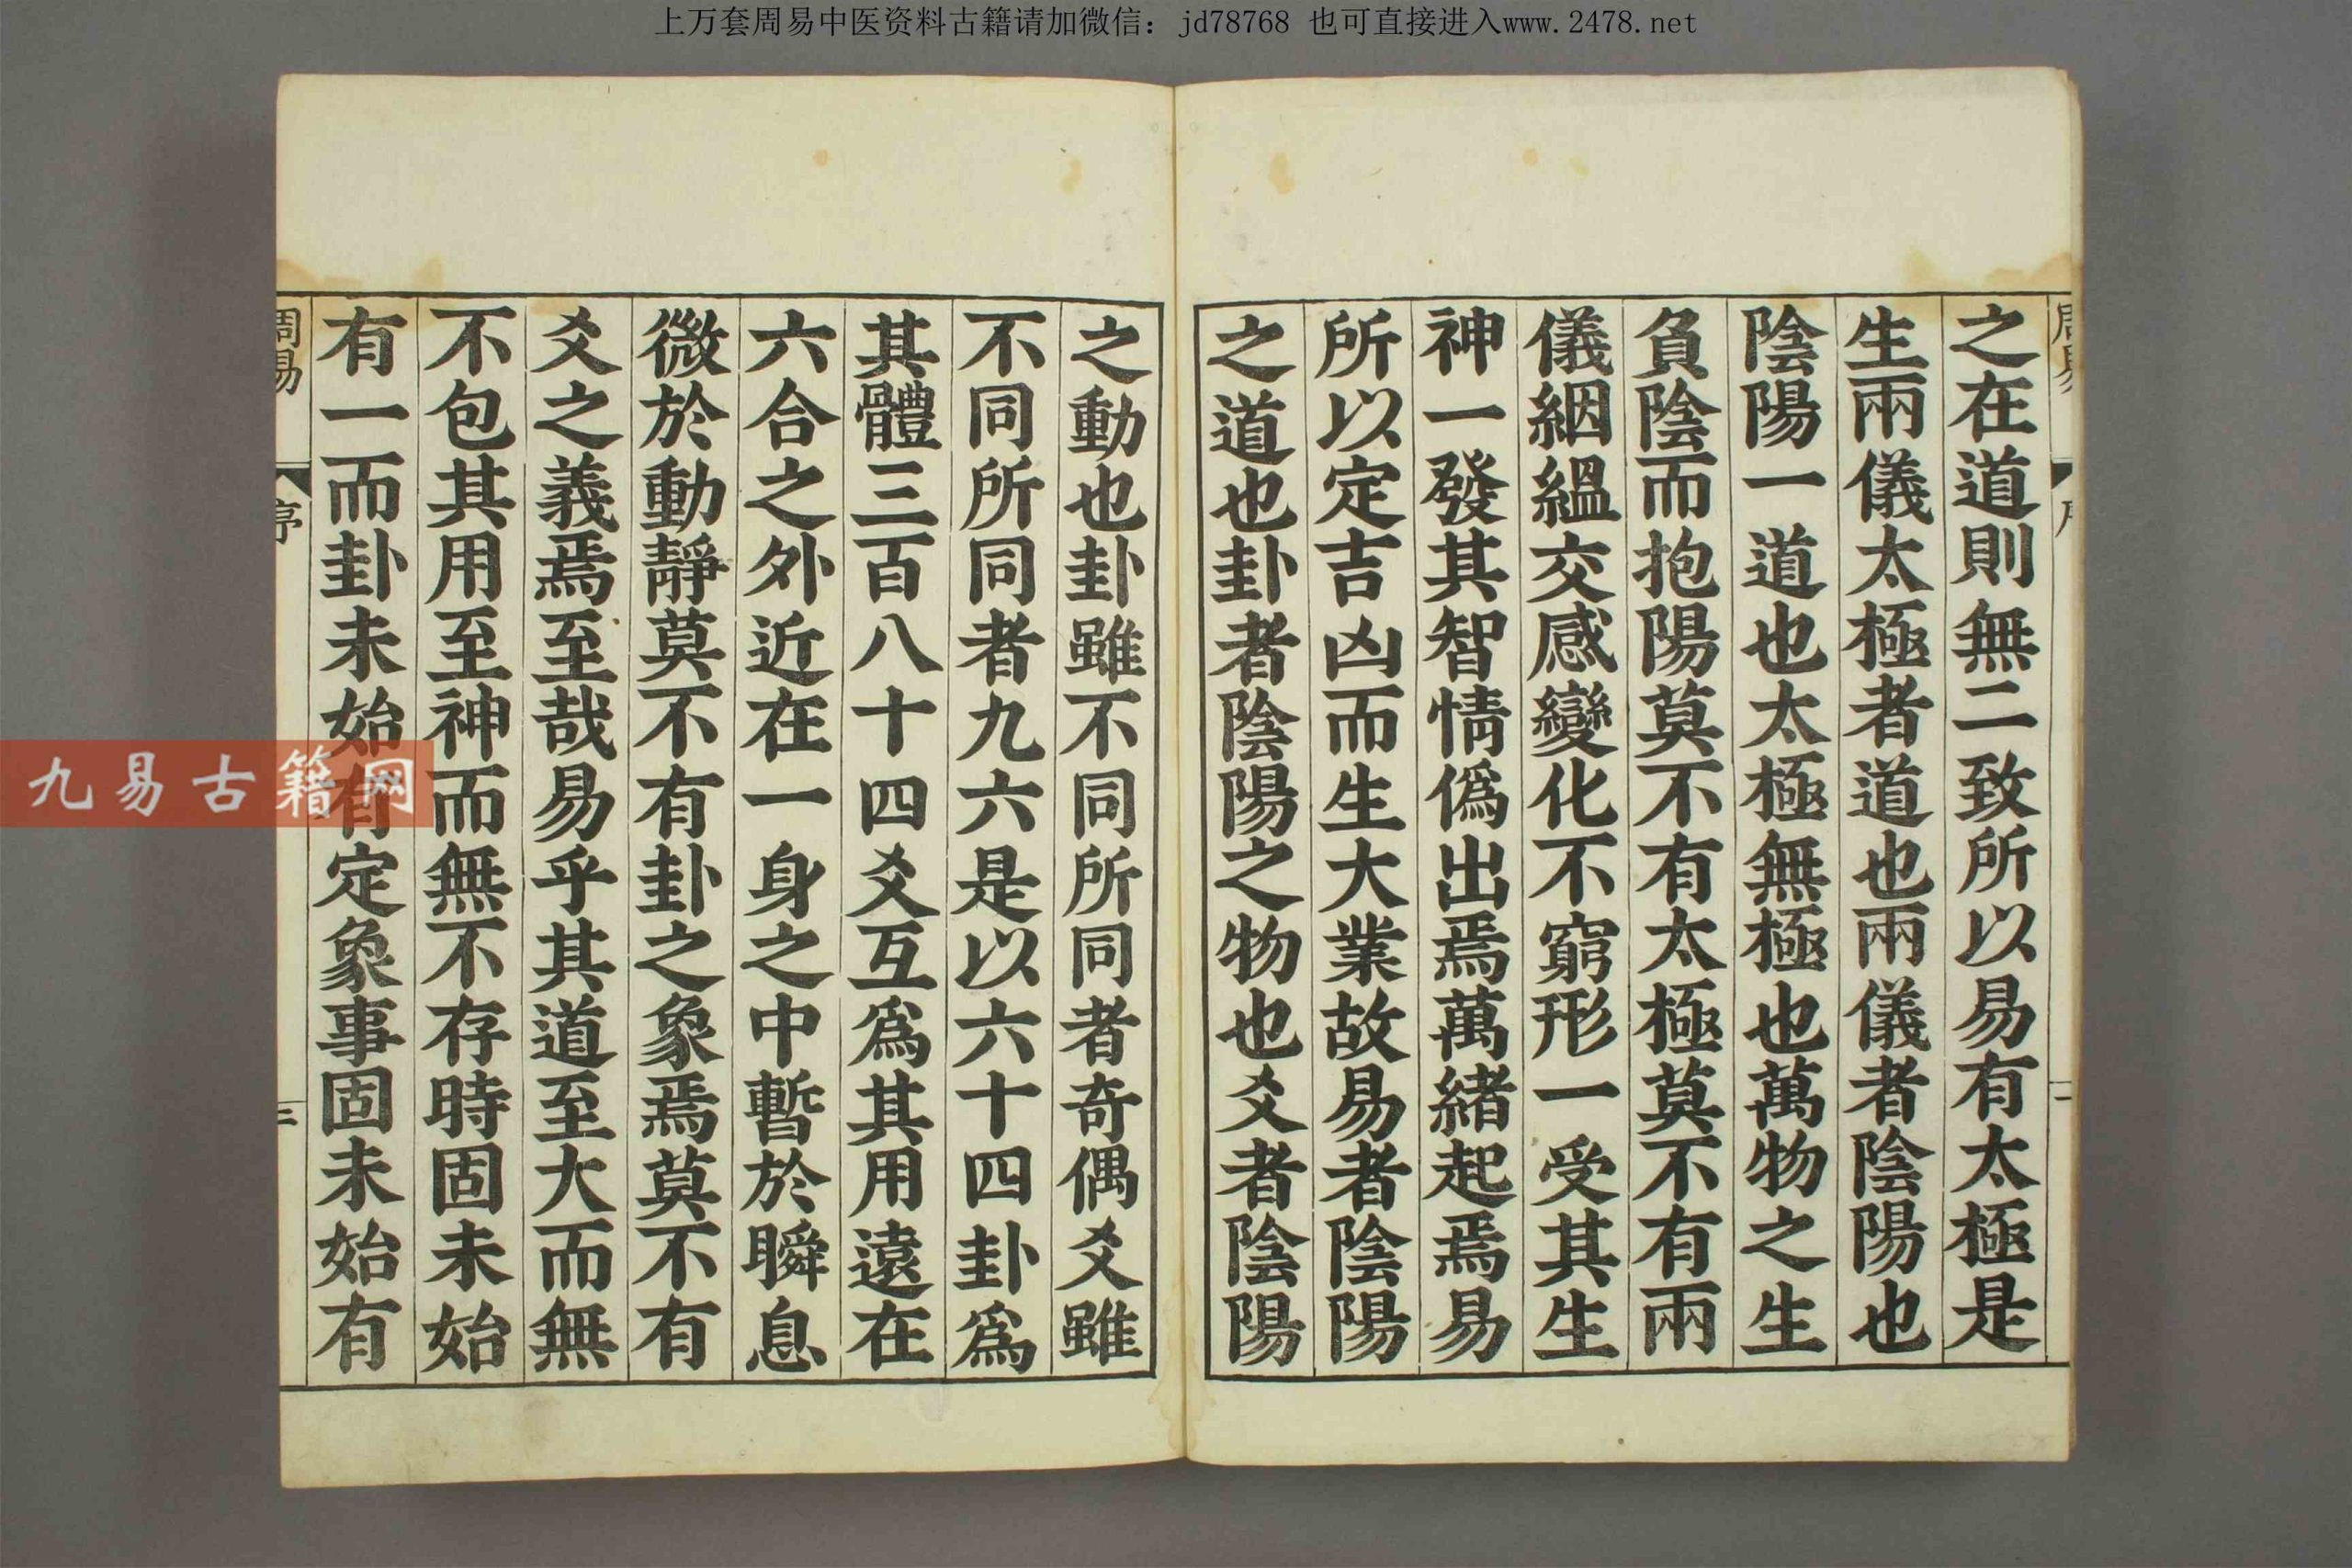 上万套周易中医资料古籍请加微信：jd78768 也可直接进入www.2478.net
周易
序
二
之在道則無二致所以易有太極是
生兩儀太極者道也兩儀者陰陽也
陰陽一道也太極無極也萬物之生
負陰而抱陽莫不有太極莫不有兩
儀絪縕交感變化不窮形一受其生
神一發其智情僞出焉萬緒起焉易
所以定吉凶而生大業故易者陰陽
之道也卦者陰陽之物也爻者陰陽
之動也卦雖不同所同者奇偶爻雖
不同所同者九六是以六十四卦爲
其體三百八十四爻互爲其用遠在
六合之外近在一身之中暫於瞬息
微於動靜莫不有卦之象焉莫不有
爻之義焉至哉易乎其道至大而無
不包其用至神而無不存時固未始
有一而卦未始有定象事固未始有
周易
序
三
九易古籍网